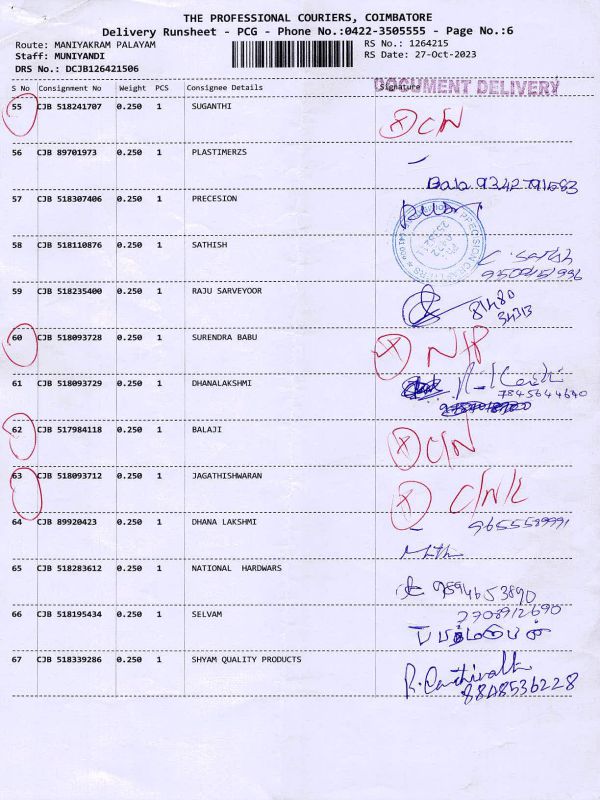 THE PROFESSIONAL COURIERS, COIMBATORE
Delivery Runsheet - PCG - Phone No.:0422-3505555 - Page No.:6
Route: MANIYAKRAM PALAYAM RS No.: 1264215
Staff: MUNIYANDI RS Date: 27-Oct-2023
DRS No.: DCJB126421506
DOCUMENT DELIVERY
S No Consignment No Weight PCS Consignee Details Signature
55 CJB 518241707 0.250 1 SUGANTHI X C/N
56 CJB 89701973 0.250 1 PLASTIMERZS
Bala 9342791683
57 CJB 518307406 0.250 1 PRECESION
58 CJB 518110876 0.250 1 SATHISH
59 CJB 518235400 0.250 1 RAJU SARVEYOOR
81480
34313
60 CJB 518093728 0.250 1 SURENDRA BABU X N/P
61 CJB 518093729 0.250 1 DHANALAKSHMI
7845644640
62 CJB 517984118 0.250 1 BALAJI X C/N
63 CJB 518093712 0.250 1 JAGATHISHWARAN X
64 CJB 89920423 0.250 1 DHANA LAKSHMI
65 CJB 518283612 0.250 1 NATIONAL HARDWARS
9894653890
66 CJB 518195434 0.250 1 SELVAM
7708912690
67 CJB 518339286 0.250 1 SHYAM QUALITY PRODUCTS
8848536228